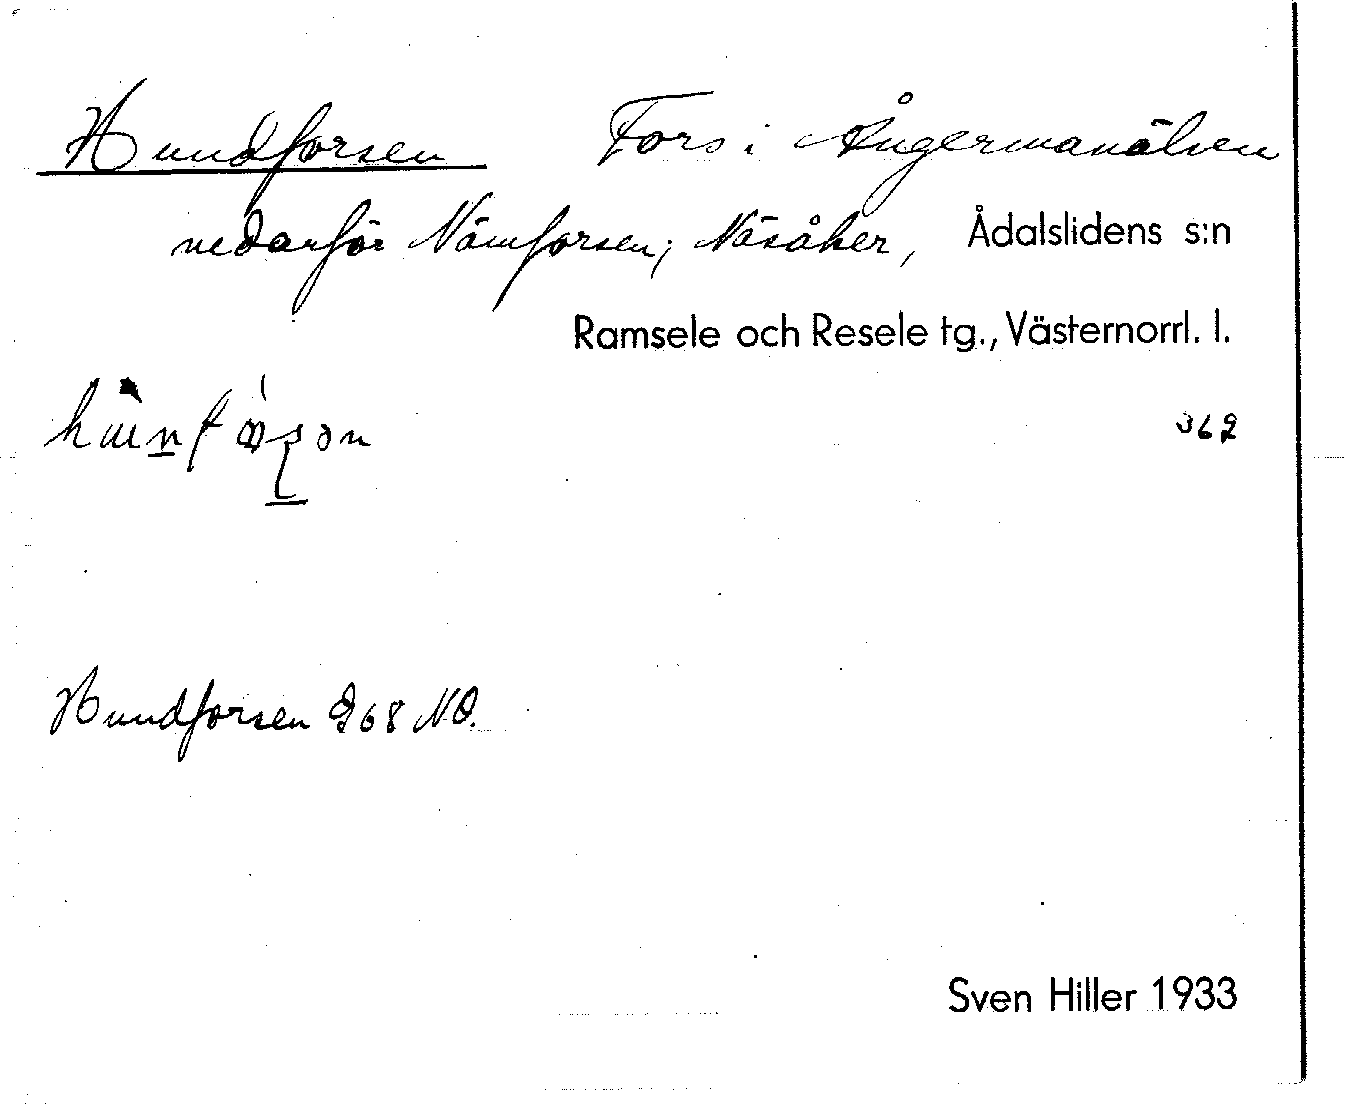 Hundforsen Fors i Ångermanälven
nedanför Nämforsen, Näsåker, Ådalslidens s:n
Ramsele och Resele tg., Västernorrl. l.
362
Hundforsen G68 NO.
Sven Hiller 1933